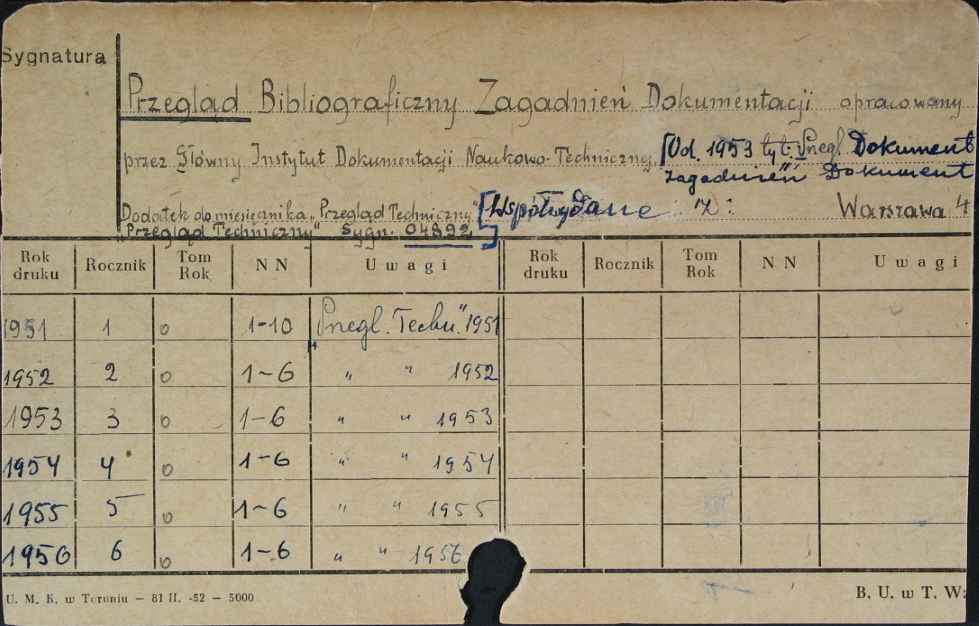 Sygnatura
Przegląd Bibliograficzny Zagadnień Dokumentacji opracowany
przez Główny Instytut Dokumentacji Naukowo-Technicznej. [Od. 1953 tyt.: Przegl. Dokument
zagadnień Dokument
Dodatek do miesięcznika „Przegląd Techniczny" [Współwydane z: Warszawa 4
„Przegląd Techniczny" Sygn. 04892]
Rok druku Rocznik Tom Rok N N Uwagi Rok druku Rocznik Tom Rok N N Uwagi
1951 1 o 1-10 „Przegl. Techn." 1951
1952 2 o 1-6 " " 1952
1953 3 o 1-6 " " 1953
1954 4 o 1-6 " " 1954
1955 5 o 1-6 " " 1955
1956 6 o 1-6 " " 1956
U. M. K. w Toruniu — 81 II. -52 — 5000 B. U. w T. W: